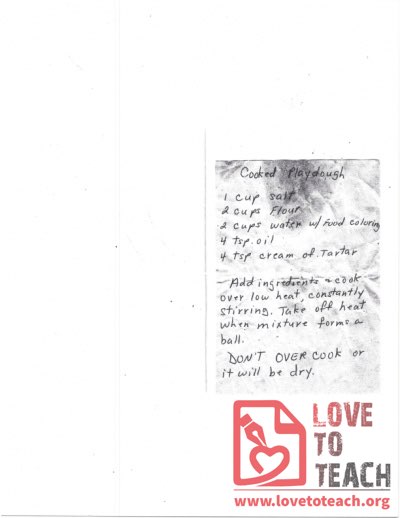 Cooked Playdough
1 cup salt
2 cups Flour
2 cups water w/ Food coloring
4 tsp. oil
4 tsp cream of. Tartar
Add ingredients & cook
over low heat, constantly
stirring. Take off heat
when mixture forms a
ball.
DON'T OVER COOK or
it will be dry.
LOVE
TO
TEACH
www.lovetoteach.org